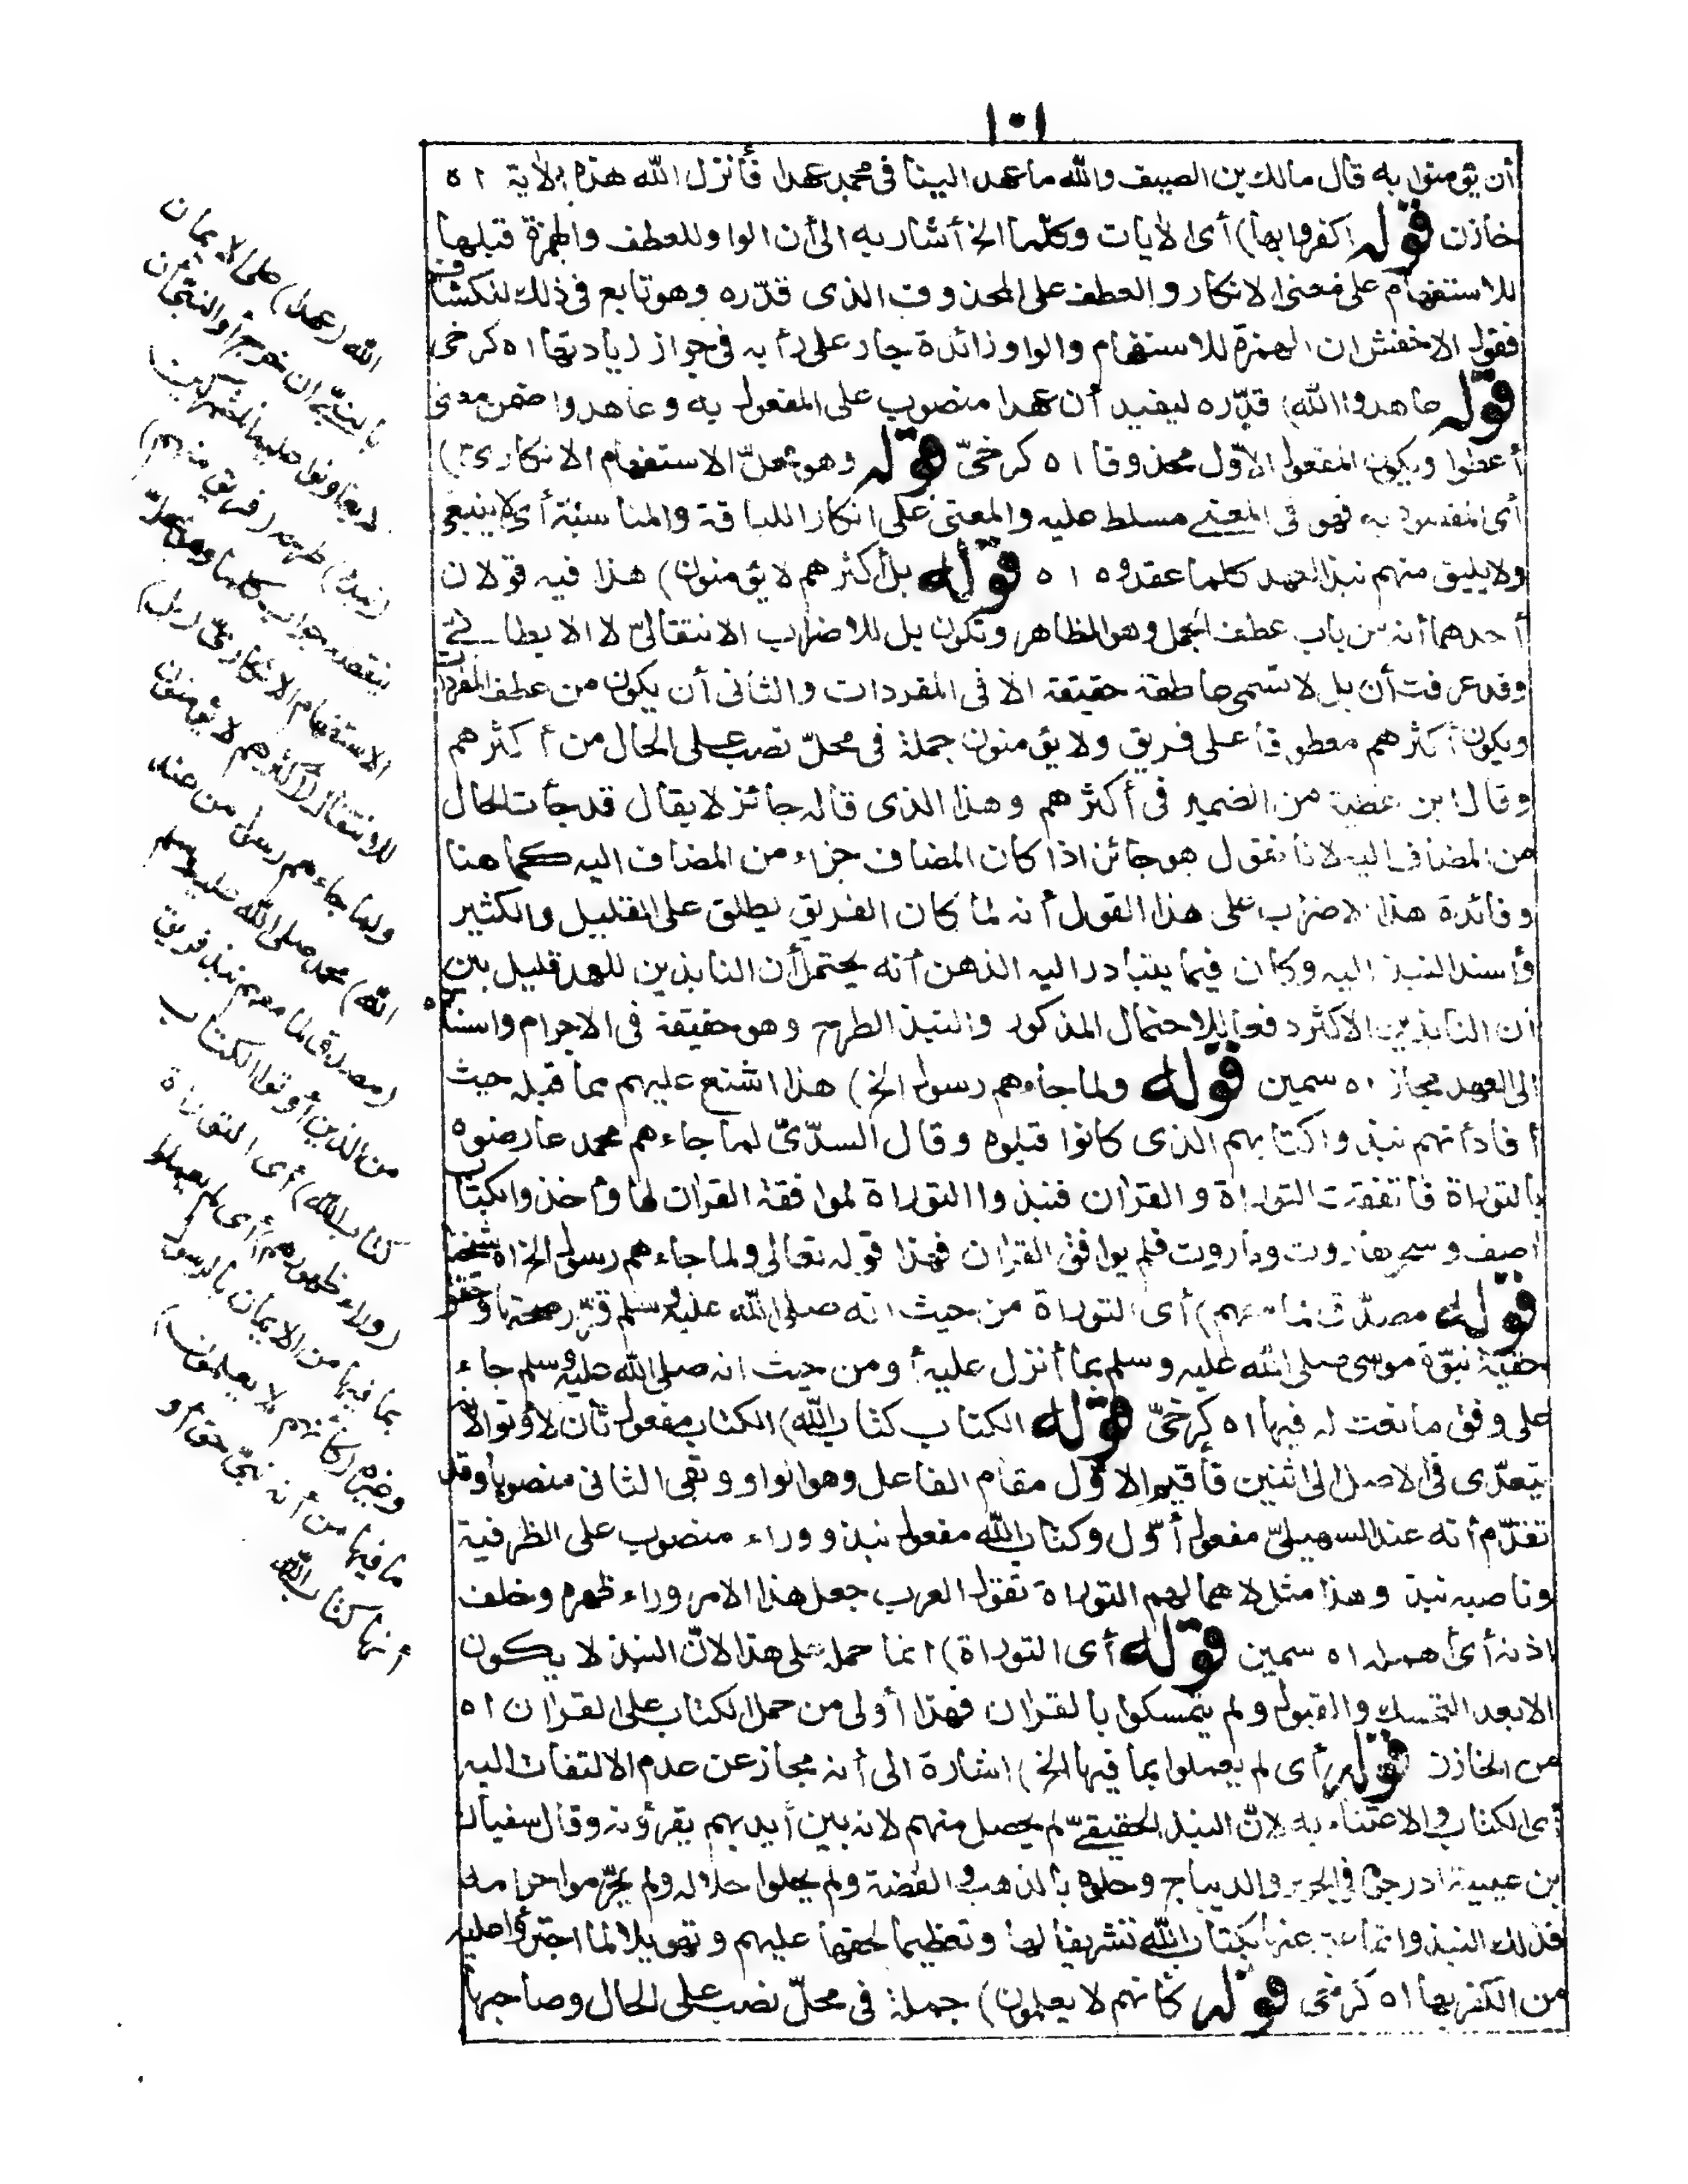 ١٠١
أن يؤمنوا به قال مالك بن الصيف والله ما عهد الينا فى محمد عهدا فأنزل الله هذه الاية ا ه
خازن قوله اكفروا بها) أى الايات وكلما الخ أشار به الى أن الواو للعطف والهمزة قبلها
للاستفهام على معنى الانكار والعطف على المحذوف الذى قدّره وهو تابع فى ذلك للكشاف
فقول الاخفش ان الهمزة للاستفهام والواو زائدة جار على رأيه فى جواز زيادتها ا ه كرخى
قوله عاهدوا الله) قدّره ليفيد أن عهدا منصوب على المفعول به وعاهدوا ضمن معنى
أعطوا ويكون المفعول الاوّل محذوفا ا ه كرخىّ قوله وهو محلّ الاستفهام الانكارىّ)
أى المقصود به فهو فى المعنى مسلط عليه والمعنى على انكار اللياقة والمناسبة أى لا ينبغى
ولا يليق منهم نبذ العهد كلما عقدوه ا ه قوله بل أكثرهم لا يؤمنون) هذا فيه قولان
أحدهما أنه من باب عطف الجمل وهو الظاهر وتكون بل للاضراب الانتقالىّ لا الابطالىّ
وقد عرفت أن بل لا تسمى عاطفة حقيقة الا فى المفردات والثانى أن يكون من عطف المفردات
ويكون أكثرهم معطوفا على فريق ولا يؤمنون جملة فى محلّ نصب على الحال من أكثرهم
وقال ابن عطية من الضمير فى أكثرهم وهذا الذى قاله جائز لا يقال قد جأت الحال
من المضاف اليه لانا نقول هو جائز اذا كان المضاف جزاء من المضاف اليه كما هنا
وفائدة هذا الاضراب على هذا القول أنه لما كان الفريق يطلق على القليل والكثير
وأسند النبذ اليه وكان فيما يتبادر اليه الذهن أنه يحتمل أن النابذين للعهد قليل بين
أن النابذين الاكثر دفعا للاحتمال المذكور والنبذ الطرح وهو حقيقة فى الاجرام واسناده
الى العهد مجاز ا ه سمين قوله ولما جاءهم رسول الخ) هذا اشنع عليهم مما قبله حيث
أفاد أنهم نبذوا كتابهم الذى كانوا قبلوه وقال السدّىّ لما جاءهم محمد عارضوه
بالتوراة فاتفقت التوراة والقران فنبذوا التوراة لموافقة القران لها وأخذوا بكتاب
اصف وسحر هاروت وماروت فلم يوافق القران فهذا قوله تعالى ولما جاءهم رسول الخ ا ه شيخنا
قوله مصدّق لما معهم) أى التوراة من حيث انه صلى الله عليه وسلم قرّر صحتها وحقق
حقية نبوّة موسى صلى الله عليه وسلم بما أنزل عليه أو من حيث انه صلى الله عليه وسلم جاء
على وفق ما نعت له فيها ا ه كرخىّ قوله الكتاب كتاب الله) الكتاب مفعول ثان لأوتوا لانه
يتعدّى فى الاصل الى اثنين فأقيم الاوّل مقام الفاعل وهو الواو وبقى الثانى منصوبا وقد
تقدّم أنه عند السهيلىّ مفعول أوّل وكتاب الله مفعول نبذ ووراء منصوب على الظرفية
وناصبه نبذ وهذا مثل لاهمالهم التوراة تقول العرب جعل هذا الامر وراء ظهره وخلف
اذنه أى أهمله ا ه سمين قوله أى التوراة) انما حمله على هذا لانّ النبذ لا يكون
الا بعد التمسك والقبول ولم يتمسكوا بالقران فهذا أولى من حمل الكتاب على القران ا ه
من الخازن قوله أى لم يعملوا بما فيها الخ) اشارة الى أنه مجاز عن عدم الالتفات اليه
أى الكتاب والاعتناء به لانّ النبذ الحقيقىّ لم يحصل منهم لانه بين أيديهم يقرؤنه وقال سفيان
بن عيينة أدرجوه فى الحرير والديباج وحلوه بالذهب والفضة ولم يحلوا حلاله ولم يحرّموا حرامه
فذلك النبذ وانما عبر عنها بكتاب الله تشريفا لها وتعظيما لحقها عليهم وتهويلا لما اجترؤا عليه
من الكفر بها ا ه كرخى قوله كأنهم لا يعلمون) جملة فى محلّ نصب على الحال وصاحبها
الله (عهدا) على الايمان
بالنبىّ ان خرج أو النبىّ أن
لا يعاونوا عليه المشركين
(نبذه) طرحه (فريق منهم)
بنقضه جواب كلما وهو محلّ
الاستفهام الانكارىّ (بل)
للانتقال (أكثرهم لا يؤمنون
ولما جاءهم رسول من عند
الله) محمد صلى الله عليه وسلم
(مصدق لما معهم نبذ فريق
من الذين أوتوا الكتاب
كتاب الله) أى التوراة
(وراء ظهورهم) أى لم يعملوا
بما فيها من الايمان بالرسول
وغيره (كأنهم لا يعلمون)
ما فيها من أنه نبىّ حق أو
أنها كتاب الله